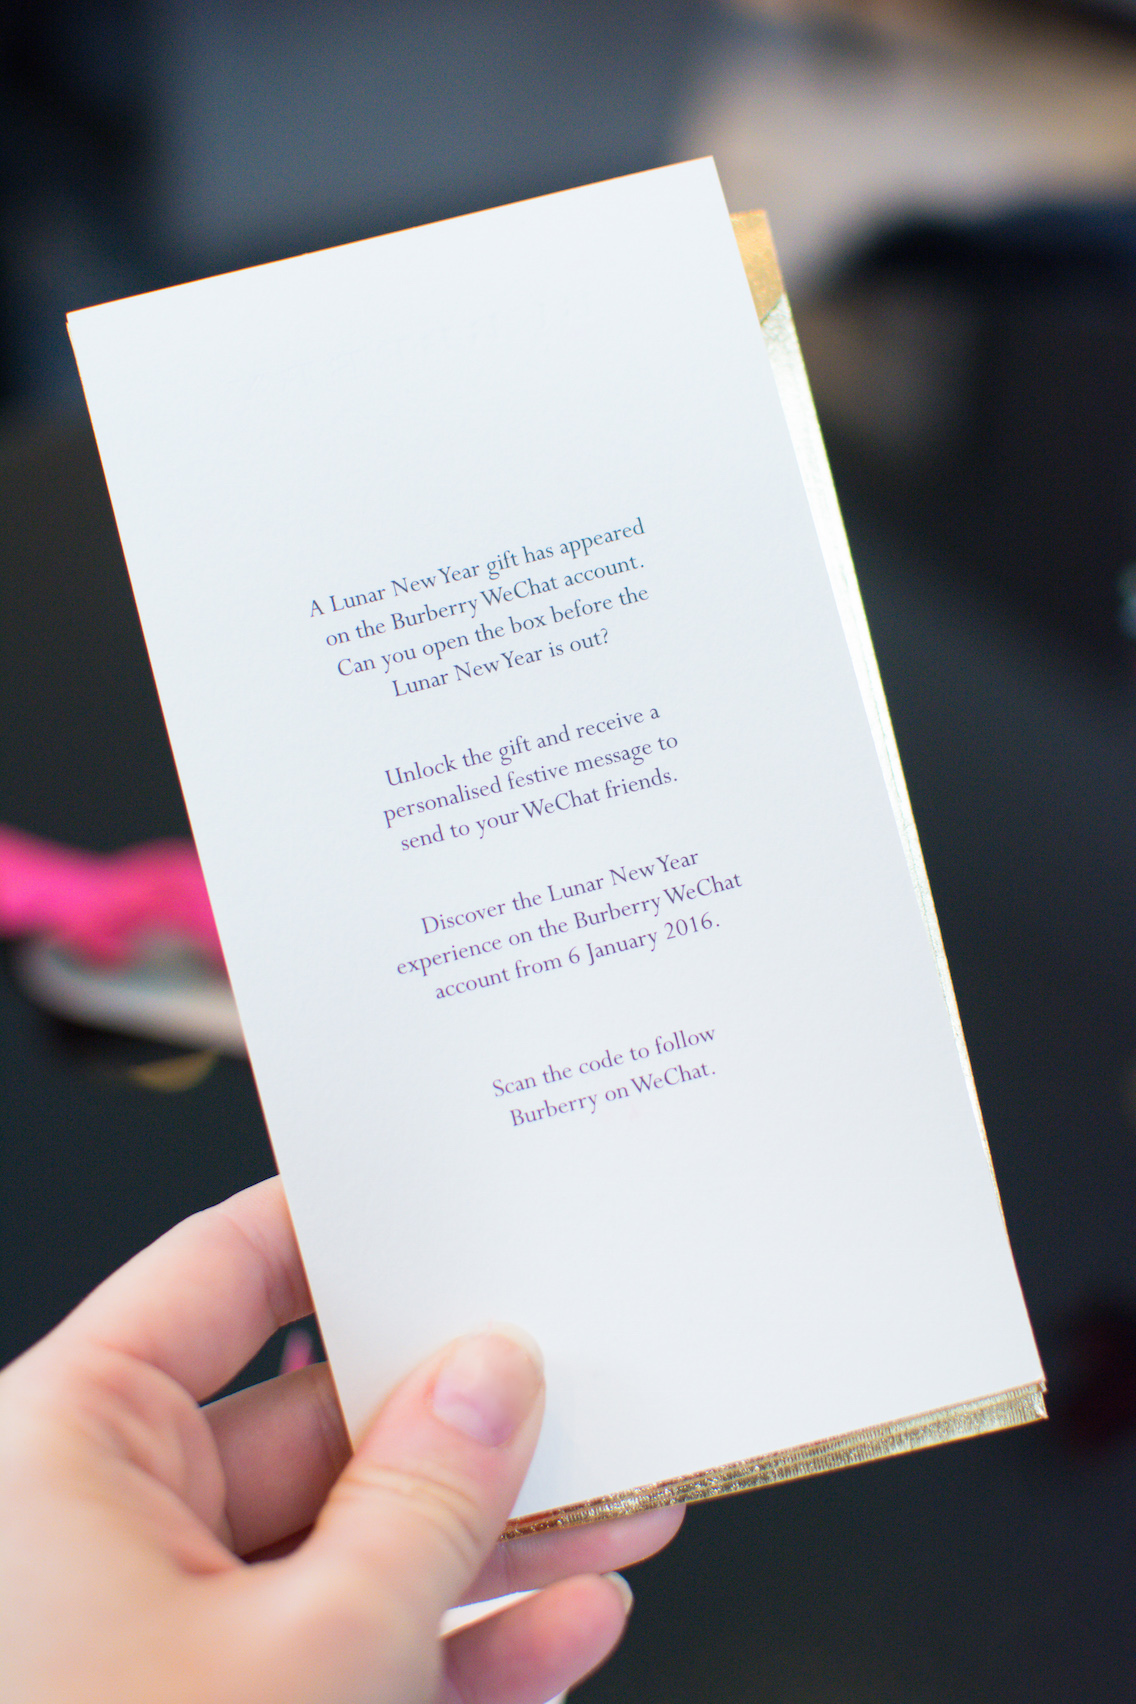 A Lunar New Year gift has appeared
on the Burberry WeChat account.
Can you open the box before the
Lunar New Year is out?
Unlock the gift and receive a
personalised festive message to
send to your WeChat friends.
Discover the Lunar New Year
experience on the Burberry WeChat
account from 6 January 2016.
Scan the code to follow
Burberry on WeChat.